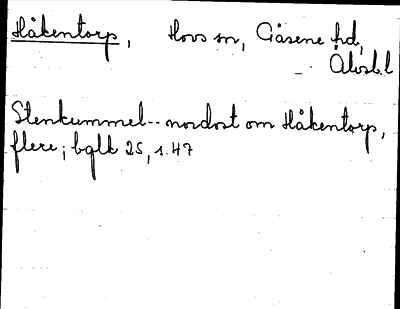 Håkentorp, Hovs sn, Gäsene hd,
Älvsb.l
Stenkummel-- nordost om Håkentorp,
flere; bglk 25, s.47